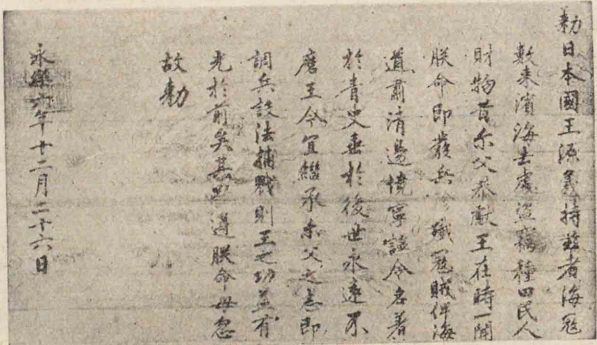 勅日本國王源義持玆者海冦
數来濱海去處盗竊種田民人
財物昔尓父恭獻王在時一聞
朕命即發兵殱冦賊俾海
道肅清邉境寧謐令名著
於青史垂於後世永遠不
磨王今宜繼承尓父之志即
調兵設法捕戮則王之功並有
光於前矣其欽遵朕命毋忽
故勅
永樂六年十二月二十六日